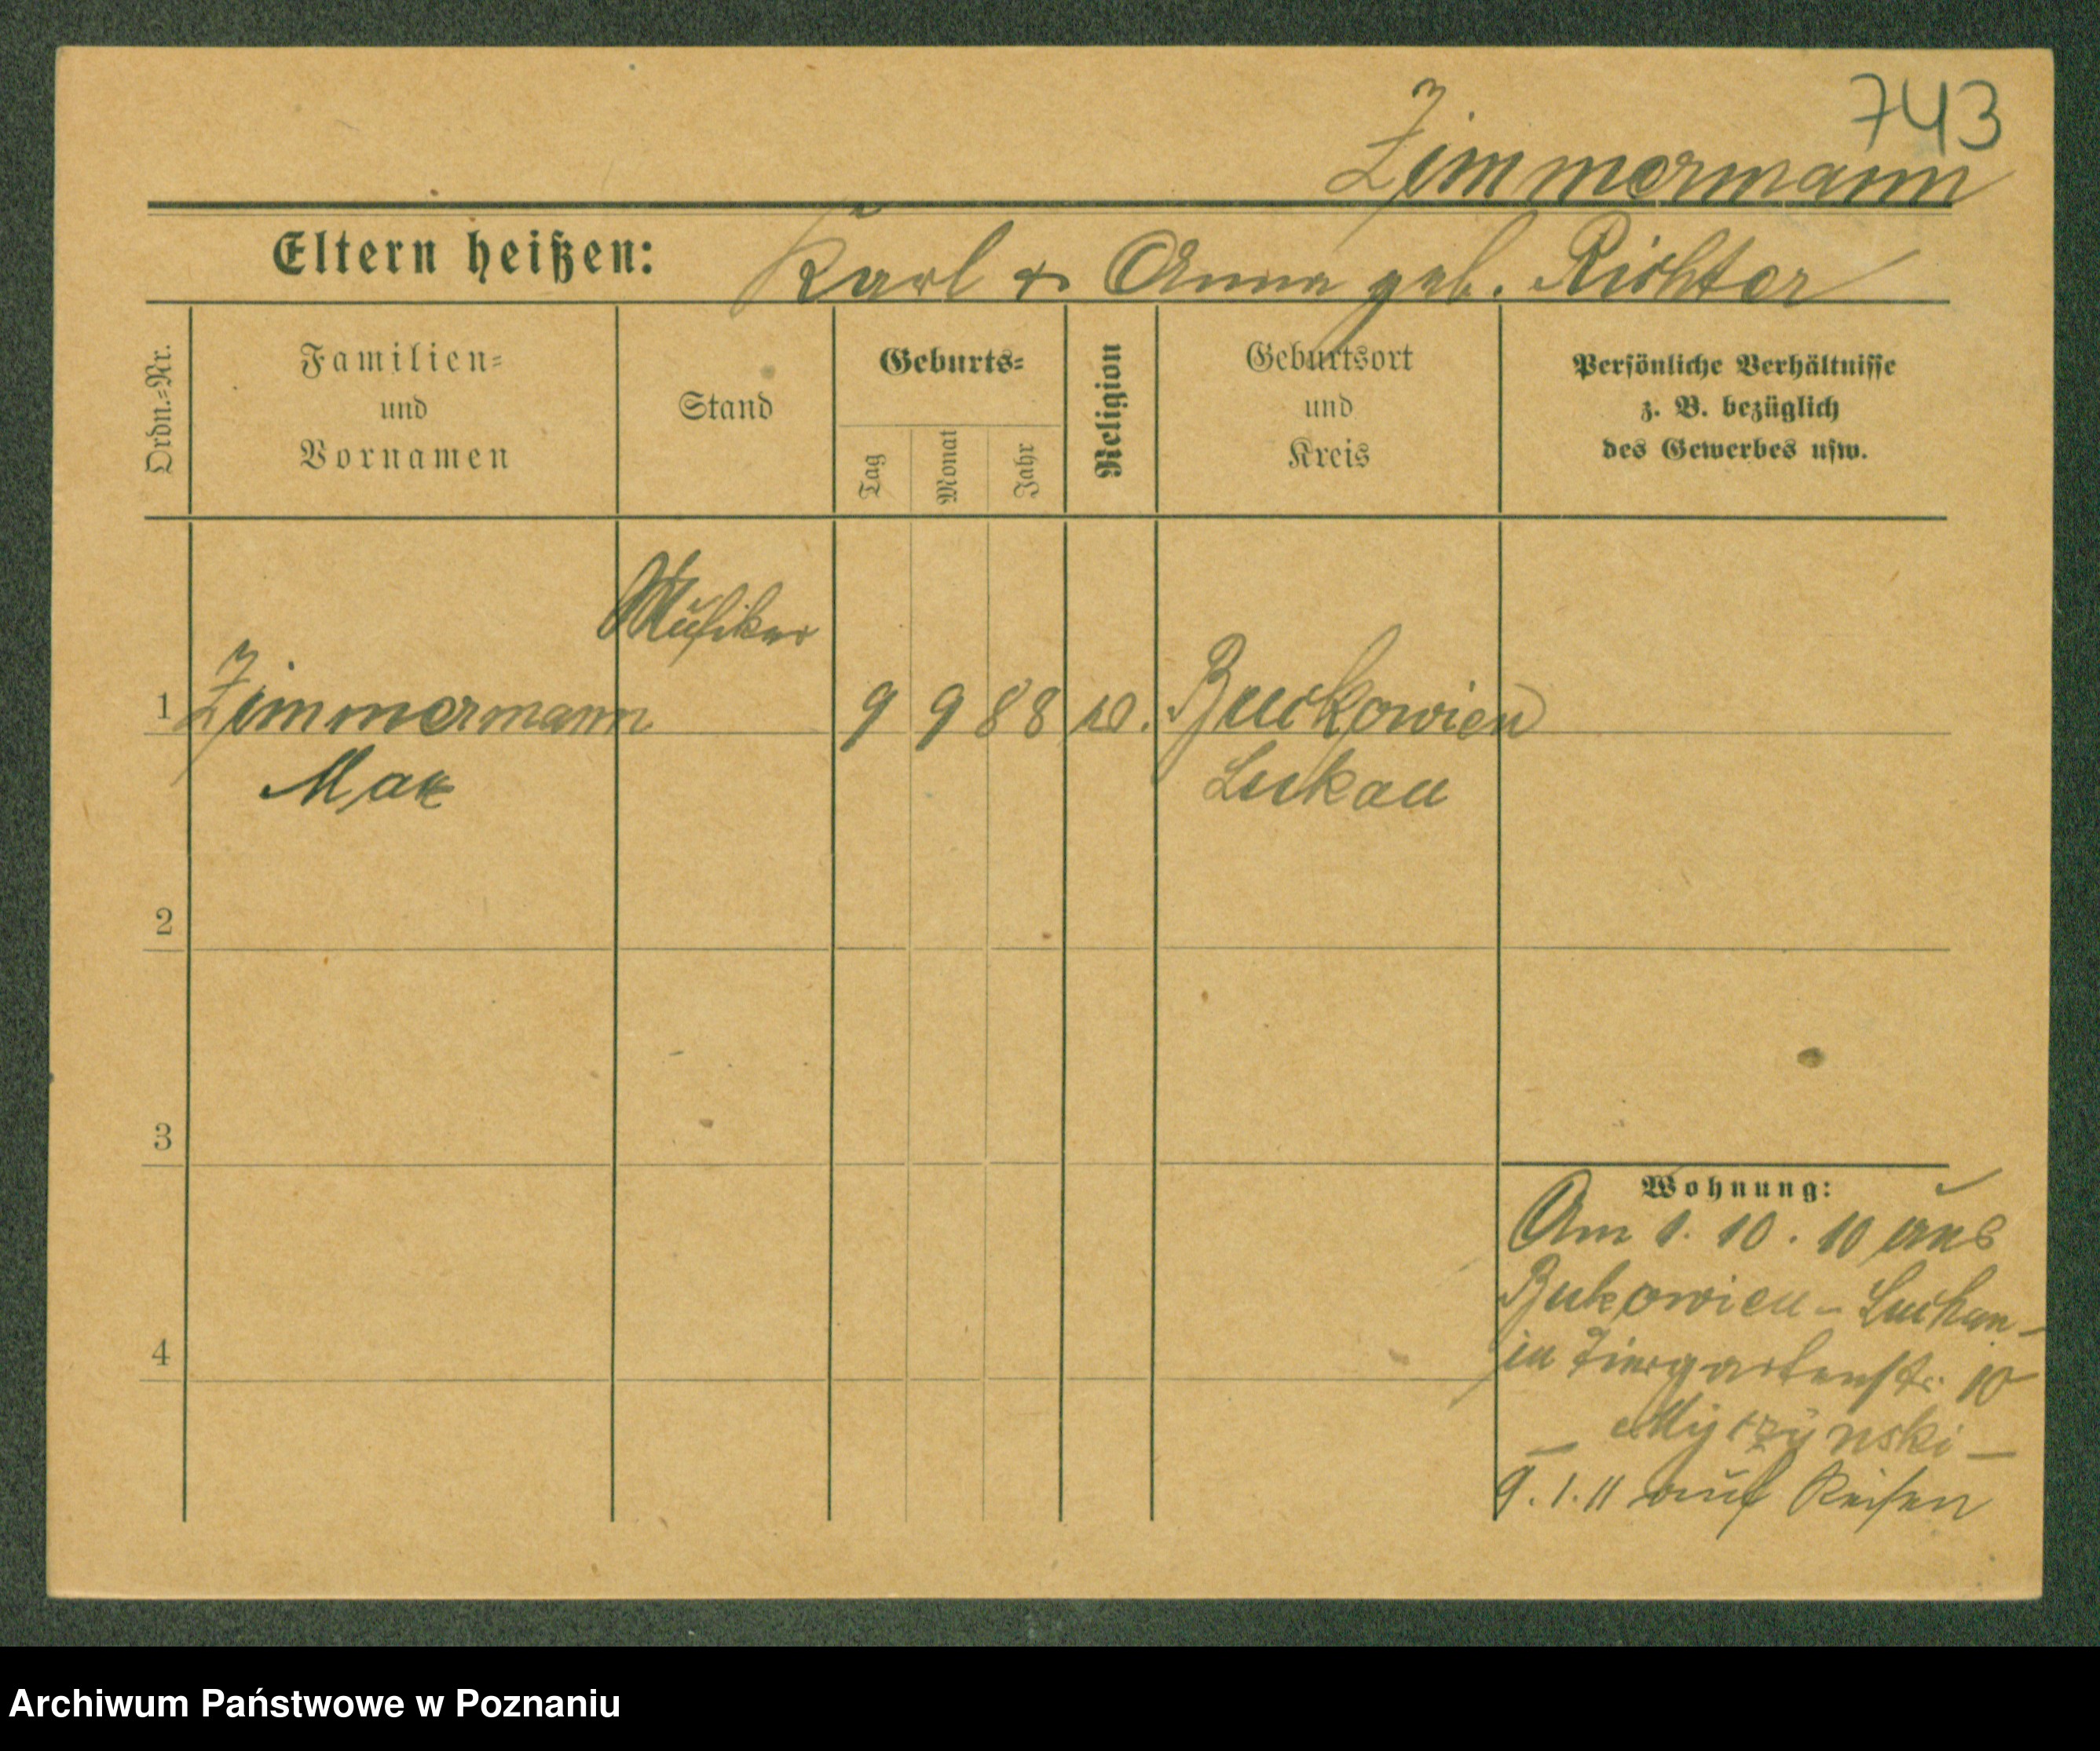 743
Zimmermann
Eltern heißen: Karl & Anna geb. Richter
Ordn.=Nr.
Familien=
und
Vornamen
Stand
Geburts=
Tag
Monat
Jahr
Religion
Geburtsort
und
Kreis
Persönliche Verhältnisse
z. B. bezüglich
des Gewerbes usw.
Musiker
1 Zimmermann 9 9 88 Buckowien
Max Lukau
2
3
4
Wohnung:
Am 1. 10. 10 aus
Bukowien - Luckau -
in Tiergartenstr. 10
— —
9. 1. 11 auf Reisen
Archiwum Państwowe w Poznaniu